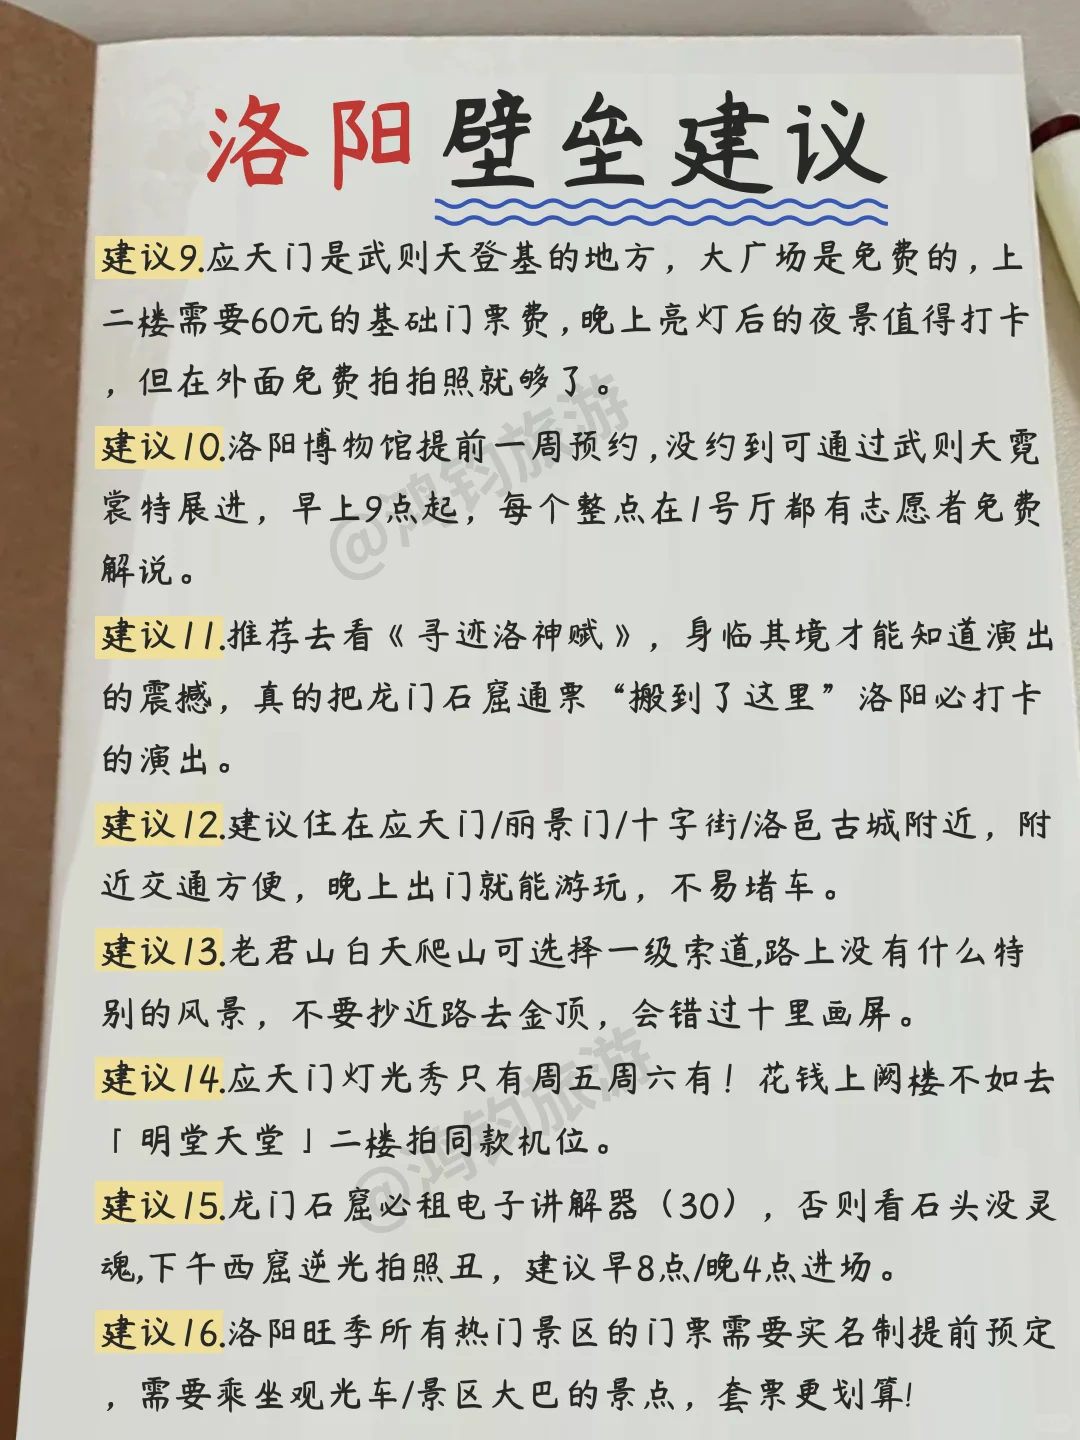 洛阳壁垒建议
建议9.应天门是武则天登基的地方，大广场是免费的,上
二楼需要60元的基础门票费,晚上亮灯后的夜景值得打卡
，但在外面免费拍拍照就够了。
建议10.洛阳博物馆提前一周预约,没约到可通过武则天霓
裳特展进，早上9点起，每个整点在1号厅都有志愿者免费
解说。
建议11.推荐去看《寻迹洛神赋》，身临其境才能知道演出
的震撼，真的把龙门石窟通票“搬到了这里”洛阳必打卡
的演出。
建议12.建议住在应天门/丽景门/十字街/洛邑古城附近，附
近交通方便，晚上出门就能游玩，不易堵车。
建议13.老君山白天爬山可选择一级索道,路上没有什么特
别的风景，不要抄近路去金顶，会错过十里画屏。
建议14.应天门灯光秀只有周五周六有！花钱上阙楼不如去
「明堂天堂」二楼拍同款机位。
建议15.龙门石窟必租电子讲解器（30），否则看石头没灵
魂,下午西窟逆光拍照丑，建议早8点/晚4点进场。
建议16.洛阳旺季所有热门景区的门票需要实名制提前预定
，需要乘坐观光车/景区大巴的景点，套票更划算!
@鸿钧旅游
@鸿钧旅游